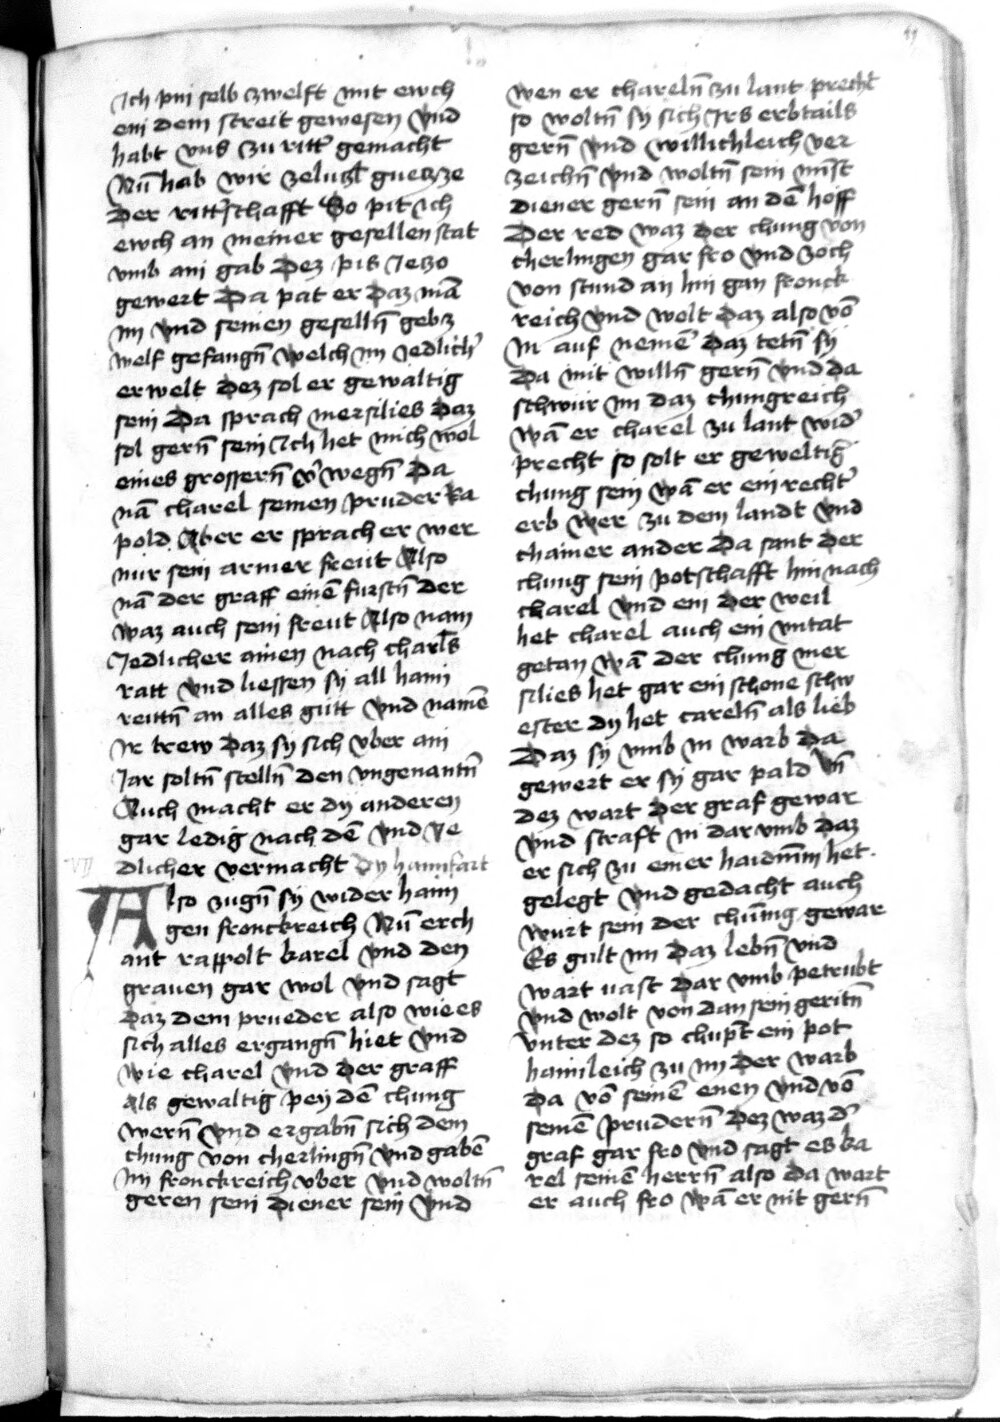 Ich pin selb czwelft mit ewch
ein dem streit gewesen Vnd
habt vns zu ritter gemacht
Nu hab wir guetze
Der ritterschafft So pit Ich
ewch an meiner gesellen stat
vmb ain gab Dez pis Ieczo
gewert Da pat er Daz mā
im Vnd seinen geselln̄ gebz
welf gefangn̄ welch im Iedlicher
erwelt Dez sol er gewaltig
sein Da sprach mersilies Daz
sol gern̄ sein Ich het mich wol
eines grossern̄ v'wegn̄ Da
nā charel seinen pruder Ra
pold Aber er sprach er wer
nur sein armer freut Also
nā der graff einē furstn̄ der
waz auch sein freut Also nam
Iedlicher ainen nach charls
ratt Vnd liessen sy all haim
reittn̄ an alles gutt Vnd namē
Ir trew Daz sy sich vber ain
Iar soltn̄ stelln̄ den vngenantn̄
Auch macht er dy anderen
gar ledig nach dē Vnd Ye
dlicher vermacht Dy haimfart
VII
Also zugn̄ sy wider haim
gen fronckreich Nu erch
ant rappolt karel Vnd den
grauen gar wol Vnd sagt
Daz dem prueder also wie es
sich alles ergangn̄ hiet Vnd
wie charel Vnd Der graff
Als gewaltig pey dē chung
wern̄ Vnd ergabn̄ sich dem
chung von cherlingn̄ Vnd gabē
Im fronckreich vber Vnd woltn̄
geren sein Diener sein Vnd
wen er chareln̄ zu lant precht
so woltn̄ sy sich Irs erbtails
gern̄ Vnd willichleich ver
zeichn̄ Vnd woltn̄ sein
diener gern̄ sein an dē hoff
Der red waz Der chung von
cherlingen gar fro Vnd zoch
von stund an hin gan fronck
reich Vnd wolt Daz also vō
In auf nemē Daz tetn̄ sy
Da mit willn̄ gern̄ Vnd Da
schwur im daz chungreich
Wā er charel zu lant wid'
precht so solt er geweltig'
chung sein wā er ein recht'
erb wer zu dem landt Vnd
chainer ander Da sant Der
chung sein potschafft hin nach
charel Vnd ein Der weil
het charel auch ein vntat
getan Wā der chung mer
silies het gar ein schone schw
ester dy het careln̄ als lieb
Daz sy vmb in warb Da
gewert er sy gar pald Vn̄
dez wart Der graf gewar
Vnd straft in dar vmb Daz
er sich zu einer haidnin het
gelegt Vnd gedacht auch
wurt sein der chunig gewar
Es gult im Daz lebn̄ Vnd
wart vast Dar vmb petrubt
Vnd wolt von dan sein geritn̄
Vnter dez so chupt ein pot
haimleich zu im Der warb
Da vō seinē enen Vnd vō
seinē prudern̄ Dez waz d'
graf gar fro Vnd sagt es ka
rel seinē herrn̄ also Da wart
er auch fro Wā er nit gern̄